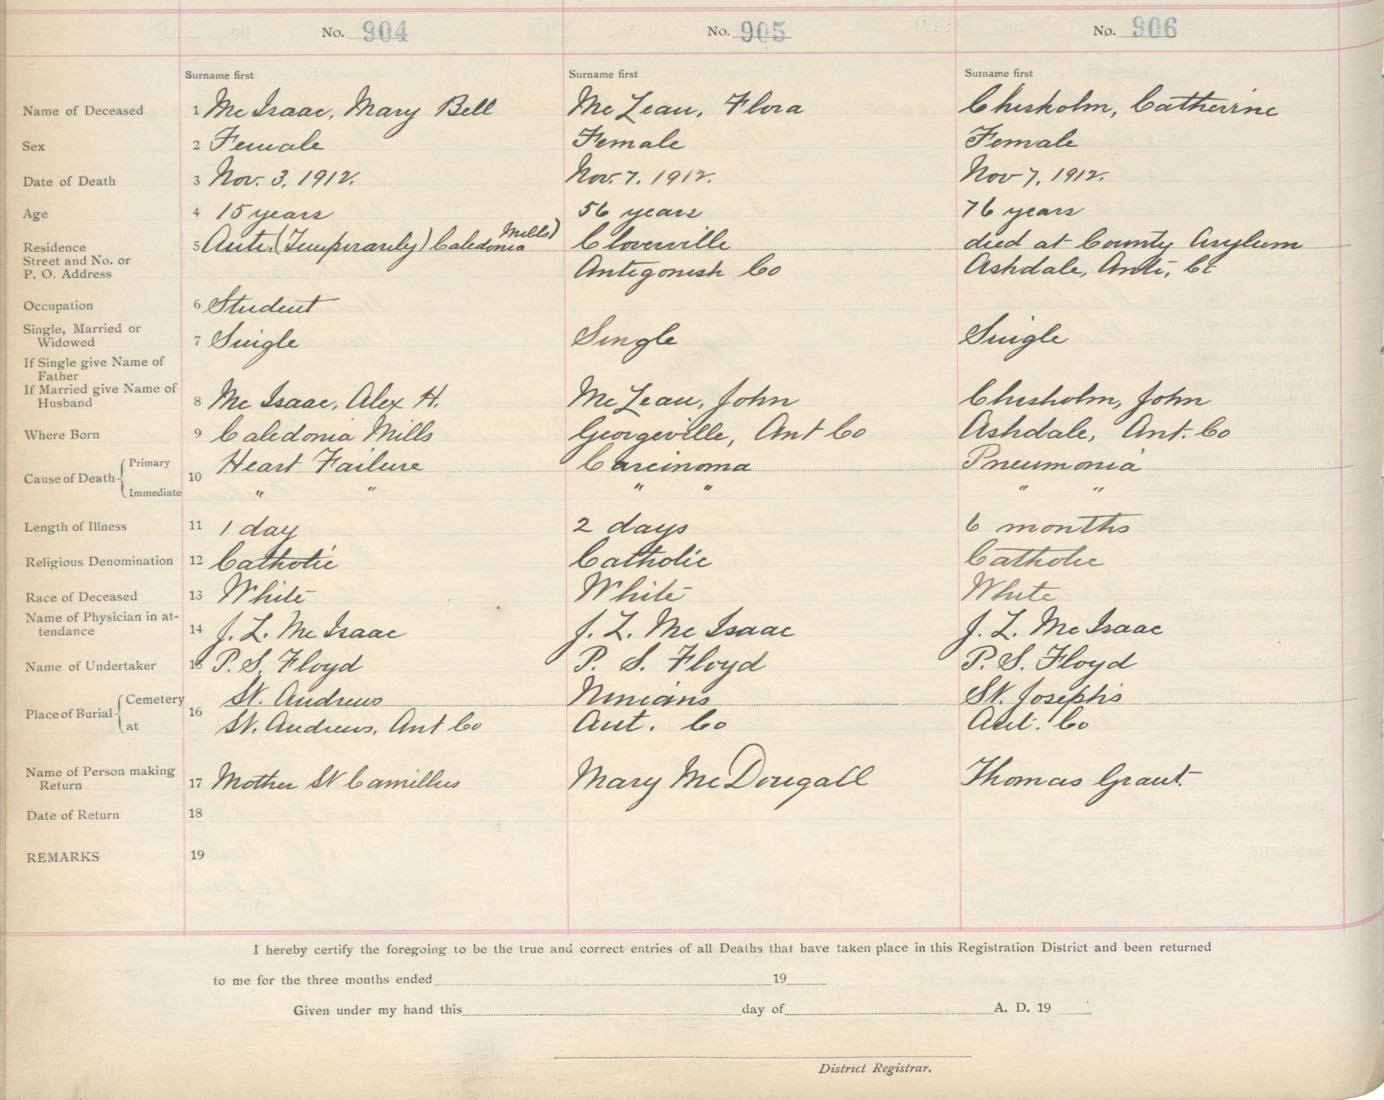 No. 904 No. 905 No. 906
Surname first Surname first Surname first
Name of Deceased 1 Mc Isaac, Mary Bell Mc Lean, Flora Chisholm, Catherine
Sex 2 Female Female Female
Date of Death 3 Nov. 3, 1912. Nov. 7, 1912. Nov 7, 1912.
Age 4 15 years 56 years 76 years
Mills)
Residence 5 Anti. (Temporarily) Caledonia Cloverville died at County Asylum
Street and No. or
P. O. Address Antigonish Co Ashdale, Anti, Co
Occupation 6 Student
Single, Married or
Widowed 7 Single Single Single
If Single give Name of
Father
If Married give Name of
Husband 8 Mc Isaac, Alex H. Mc Lean, John Chisholm, John
Where Born 9 Caledonia Mills Georgeville, Ant Co Ashdale, Ant. Co
Cause of Death { Primary 10 Heart Failure Carcinoma Pneumonia
Immediate " " " " " "
Length of Illness 11 1 day 2 days 6 months
Religious Denomination 12 Catholic Catholic Catholic
Race of Deceased 13 White White White
Name of Physician in at-
tendance 14 J. L. Mc Isaac J. L. Mc Isaac J. L. Mc Isaac
Name of Undertaker 15 P. S. Floyd P. S. Floyd P. S. Floyd
Place of Burial { Cemetery 16 St. Andrews Ninians St. Joseph's
at St. Andrews, Ant Co Ant. Co Ant. Co
Name of Person making
Return 17 Mother St Camillus Mary McDougall Thomas Grant.
Date of Return 18
REMARKS 19
I hereby certify the foregoing to be the true and correct entries of all Deaths that have taken place in this Registration District and been returned
to me for the three months ended 19
Given under my hand this day of A. D. 19
District Registrar.